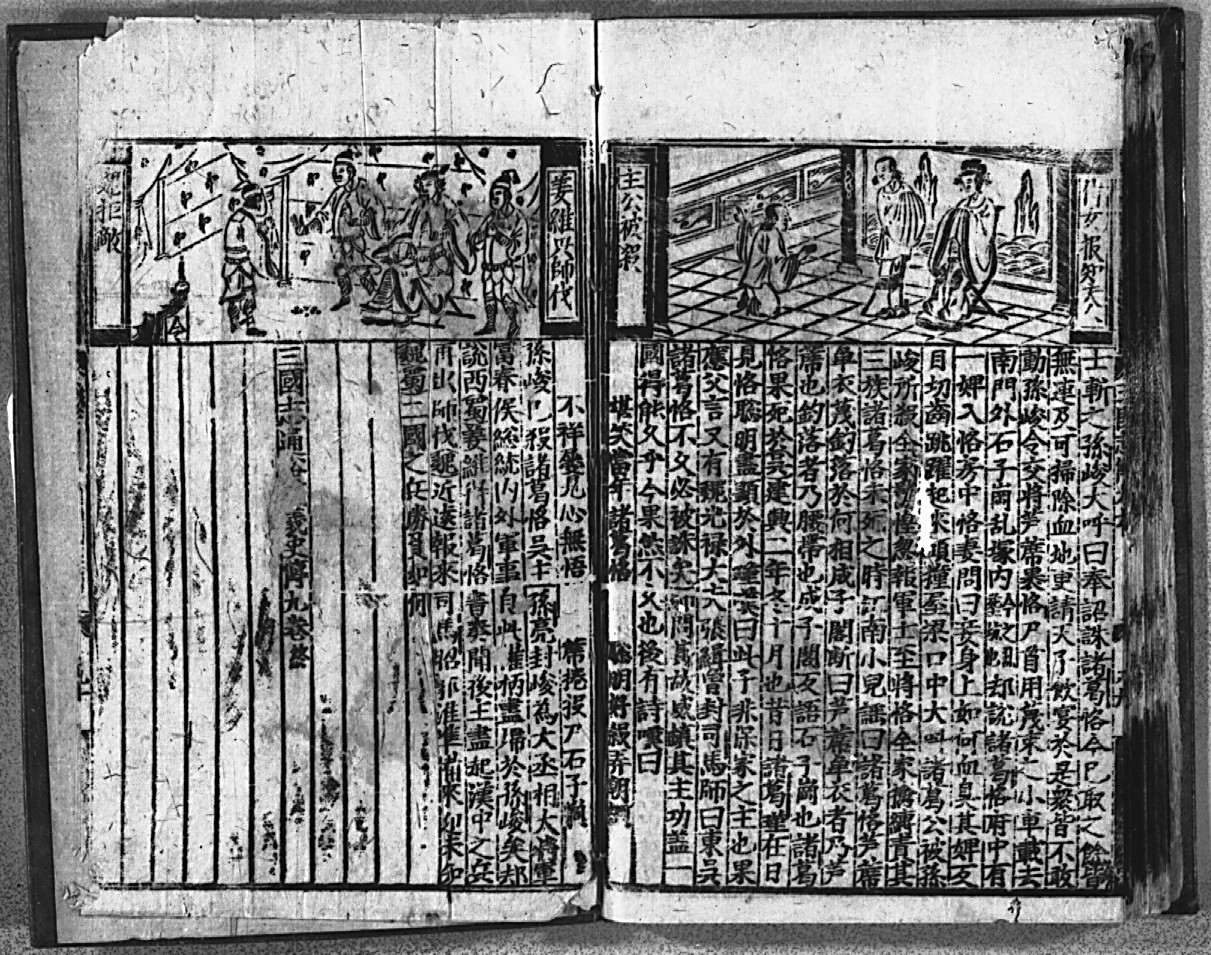 主公被殺
士斬之孫峻大呼曰奉詔誅諸葛恪今已取之餘皆
無連及可掃除血地更請天子飲宴於是衆皆不敢
動孫峻令交將芦蓆裹恪尸首用篾束之小車載去
南門外石子崗乱塚内却說諸葛恪府中有
一婢入恪房中恪妻問曰妾身上如何血臭其婢反
目切齒跳躍起來頭撞屋梁口中大叫諸葛公被孫
峻所殺全家惶忽報軍士至將恪全家擒縛責其
三族諸葛恪未死之時江南小兒謡曰諸葛恪芦蓆
单衣篾鈎落於何相成子閣断曰芦蓆单衣者乃芦
蓆也鈎落者乃腰帯也成子閣反語石子崗也諸葛
恪果死於吴建興二年冬十月也昔日諸葛瑾在日
見恪聡明盡顯於外嘆曰此子非保家之主也果
應父言又有魏光禄大夫張緝曾对司馬師曰東吴
諸葛恪不久必被誅矣師問其故威鎮其主功盖一
國得能久乎今果然不久也後有詩嘆曰
堪笑當年諸葛恪 聡明好殺弄朝
姜維興師伐
魏拒敵
不祥叠見心無悟 蓆捲投尸石子崗
孫峻已殺諸葛恪吴主孫亮封峻為大丞相大將軍
富春侯総統内外軍事自此權柄盡歸於孫峻矣却
說西蜀姜維得諸葛恪書奏聞後主盡起漢中之兵
再出師伐魏近遠報來司馬昭郭淮准備來迎未知
魏蜀二國之兵勝負如何
三國士通俗義史傳九卷終